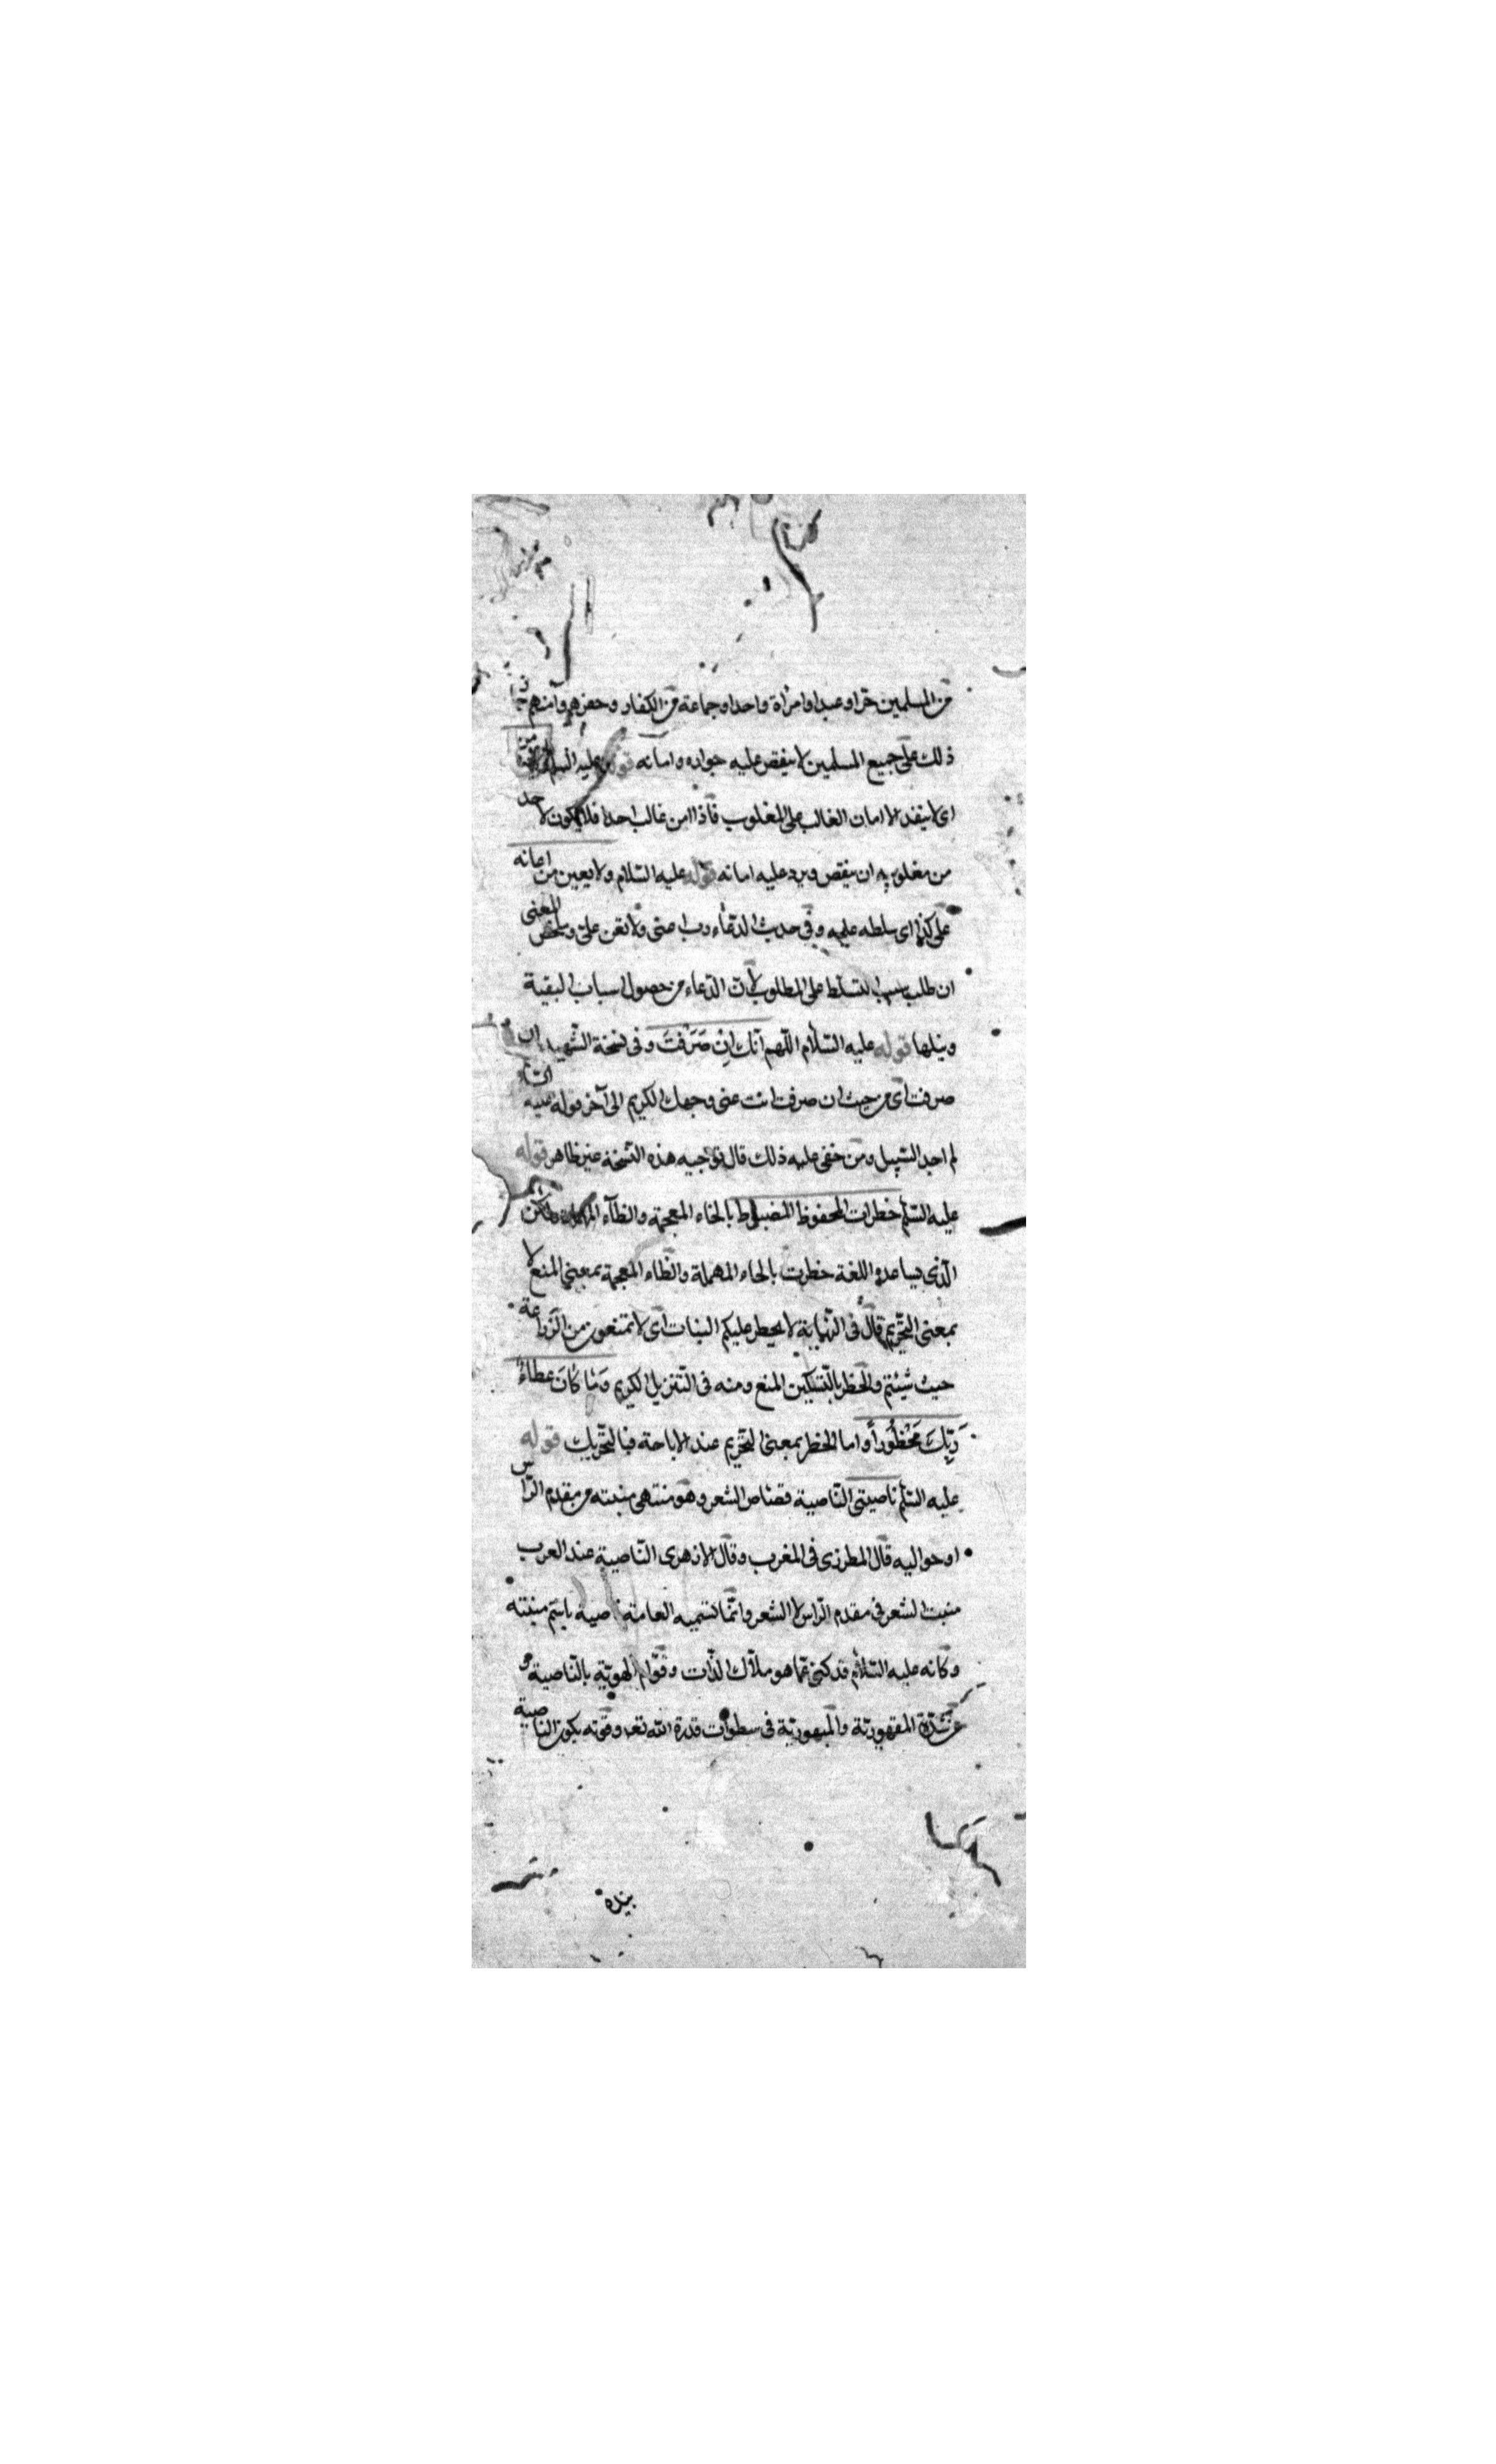 من المسلمين حرا او عبدا او امراة واحدا او جماعة من الكفار وخفرهم وآمنهم جاز
ذلك على جميع المسلمين لا ينقض عليه جواره وامانه قوله عليه السلم
اى لا ينفد الا امان الغالب على المغلوب فاذا امن غالب احدا فلا يكون لاحد
من مغلوبيه ان ينقض ويرد عليه امانه قوله عليه السّلام ولا يعين من اعانه
على كذا اى سلطه عليه وفى حديث الدعاء رب اعنى ولا تعن علىّ وملخص المعنى
ان طلب سببا لتسلط على المطلوب لأت الدّعاء من حصول اسباب البقية
ونيلها قوله عليه السّلام اللّهم انّك اِنْ صَرَفْتَ وفى نسخة الشّهيد ان
صرفت اى من حيث ان صرفت انت عنى وجهك الكريم الى آخر قوله عليه السّلم
لم اجد السّبيل ومن خفى عليه ذلك قال توجيه هذه النّسخة غير ظاهر قوله
عليه السّلم خطرات المحفوظ المضبوط بالخاء المعجمة والطآء المهملة ولكن
الّذى يساعده اللغة حظرت بالحاء المهملة والظاء المعجمة بمعنى المنع لا
بمعنى التحّريم قال فى النّهاية لا يحظر عليكم النبات اى لا تمنعون من الزّراعة
حيث شئتم والحظر بالتّسكين المنع ومنه فى التّنزيل الكريم وَمٰا كٰانَ عطاءُ
رَبِّكَ مَحْظُوراً واما الحظر بمعنى التحّريم عند الاباحة فبالتحّريك قوله
عليه السّلم ناصيتى النّاصية قصاص الشعر وهو منتهى منبته من مقدم الرّاس
او حواليه قال المطرزى فى المغرب وقال الازهرى النّاصية عند العرب
منبت الشعر فى مقدم الرّاس لا الشعر وانّما تسميه العامة ناصية باسم منبته
وكانه عليه السّلام قد كنى عمّا هو ملاك الذّات وقوّام الهويّة بالنّاصية و
عن شدّة المقهوريّة والمبهوريّة فى سطوات قدرة الله تعه وقوته بكون الناصية
بيده